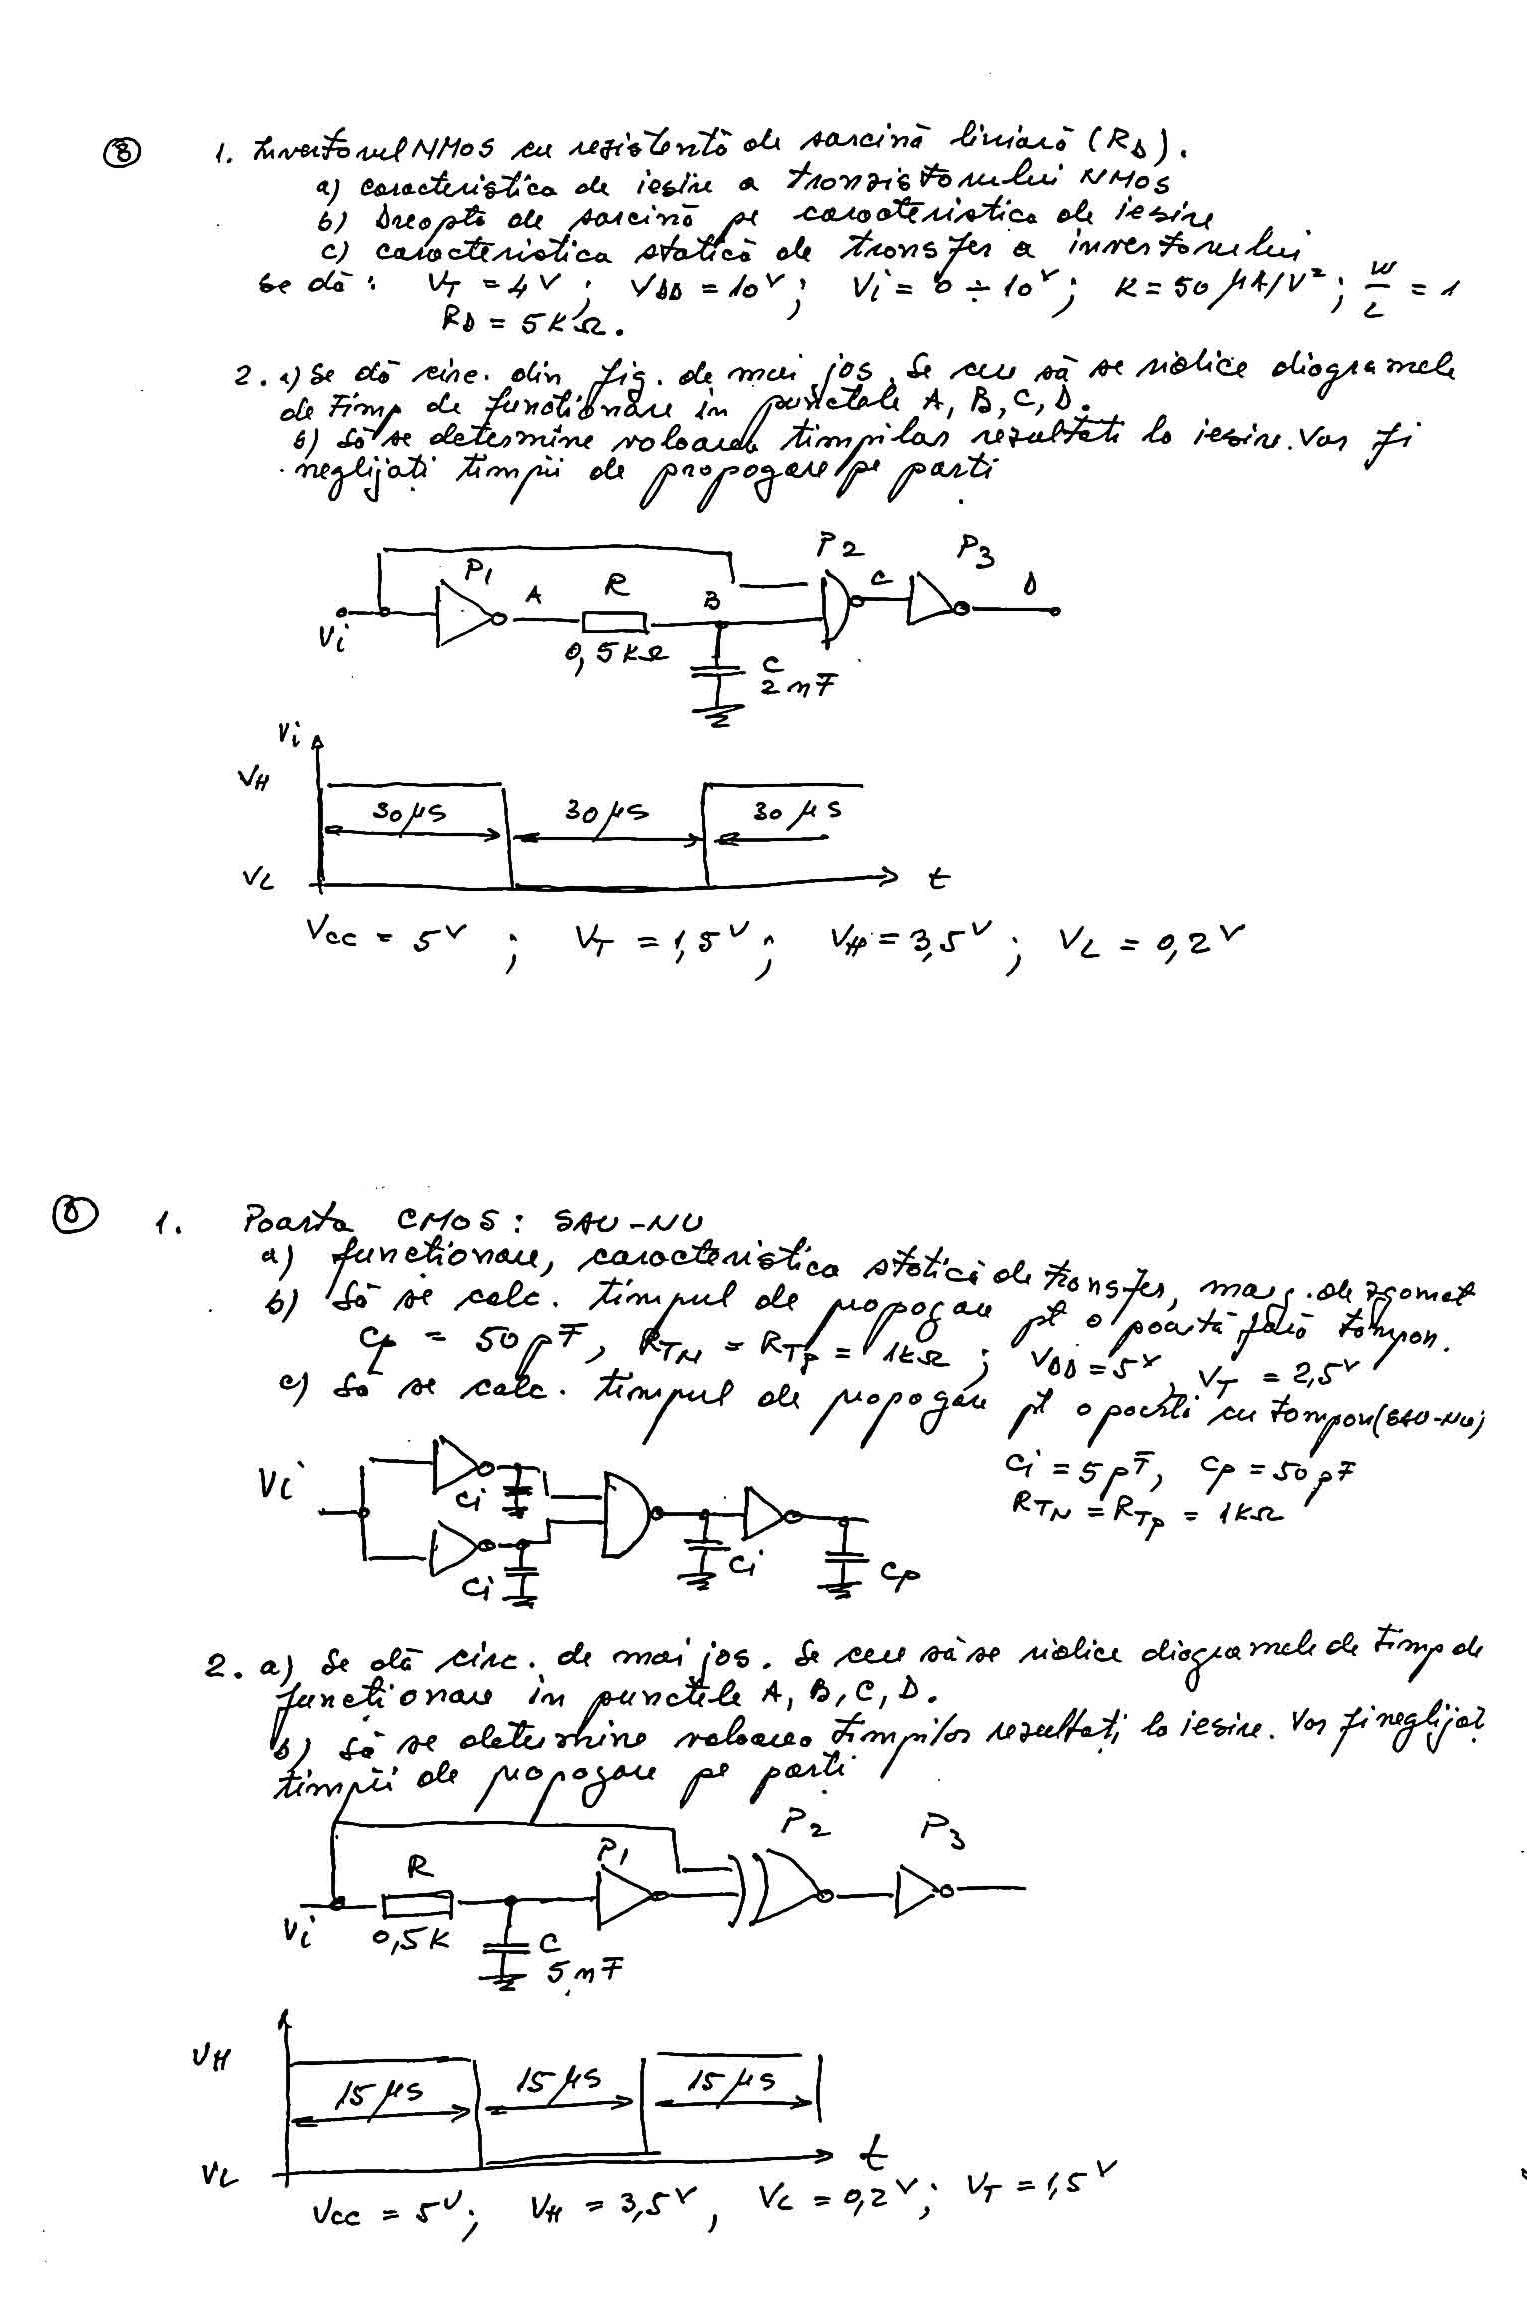 ⑧ 1. Invertorul NMOS cu rezistență de sarcină liniară (RD).
a) caracteristica de ieșire a tranzistorului NMOS
b) Dreapta de sarcină pe caracteristica de ieșire
c) caracteristica statică de transfer a invertorului
Se dă: VT = 4V; VDD = 10V; Vi = 0 ÷ 10V; K = 50 μA/V²; W/L = 1
RD = 5KΩ.
2. a) Se dă circ. din fig. de mai jos. Se cere să se ridice diagramele
de timp de functionare in punctele A, B, C, D.
b) Să se determine valoarea timpilor rezultati la iesire. Vor fi
neglijați timpii de propagare pe parti
P1 A R B P2 C P3 D
Vi
0,5KΩ
C
2nF
Vi
VH
30μs 30μs 30μs
VL t
Vcc = 5V; VT = 1,5V; VH = 3,5V; VL = 0,2V
1. Poarta CMOS: SAU-NU
a) funcționare, caracteristica statică de transfer, marg. de zgomot
b) Să se calc. timpul de propagare pt o poartă fără tampon.
Cp = 50pF, RTN = RTp = 1KΩ; VDD = 5V, VT = 2,5V
c) Să se calc. timpul de propagare pt o poartă cu tampon (SAU-NU)
Vi Ci Ci Ci Cp
Ci = 5pF, Cp = 50pF
RTN = RTp = 1KΩ
2. a) Se dă circ. de mai jos. Se cere să se ridice diagramele de timp de
funcționare in punctele A, B, C, D.
b) Să se determine valoarea timpilor rezultați la iesire. Vor fi neglijați
timpii de propagare pe parti
R P1 P2 P3
Vi 0,5K C
5nF
VH
15μs 15μs 15μs
VL t
Vcc = 5V; VH = 3,5V, VL = 0,2V; VT = 1,5V